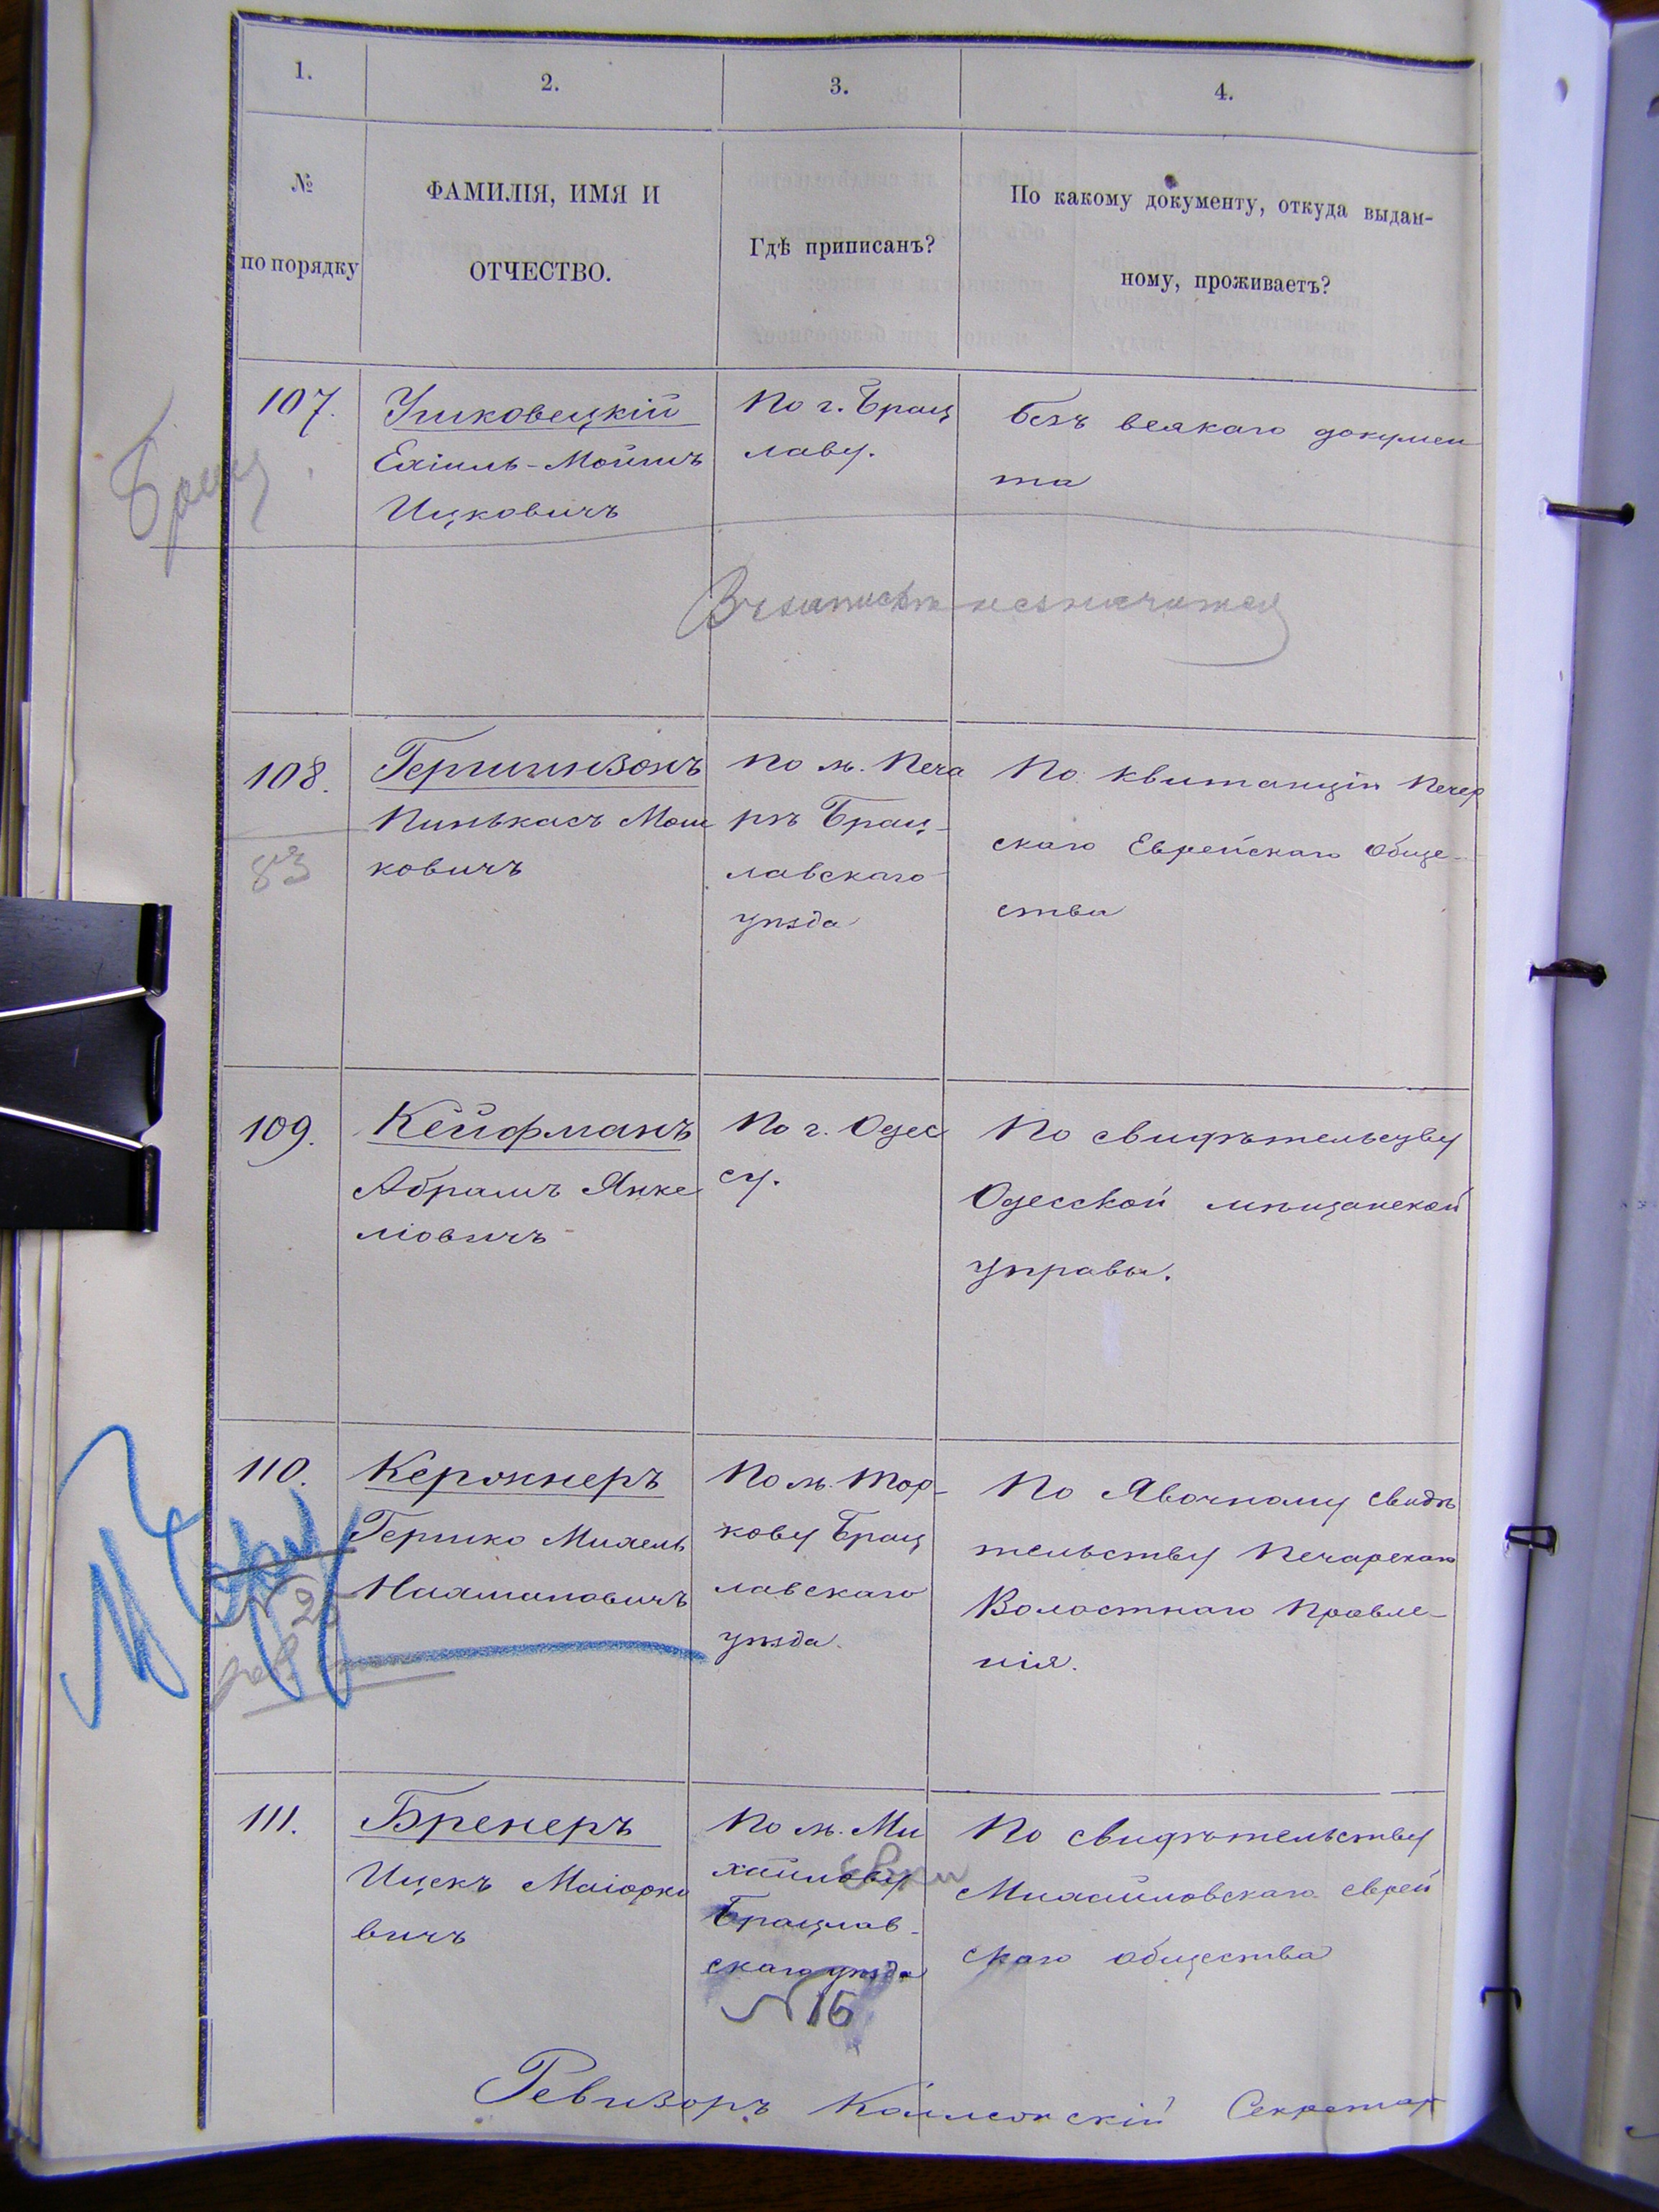 1.
2.
3.
4.
№
по порядку
ФАМИЛІЯ, ИМЯ И
ОТЧЕСТВО.
Гдѣ приписанъ?
По какому документу, откуда выдан-
ному, проживаетъ?
107.
Ушковецкій
Ехіиль-Мойшъ
Ицковичъ
По г. Брац
лаву.
безъ всякаго докумен
та
Брац
108.
83
Гершинзонъ
Пинькасъ Мош
ковичъ
По м. Печа
рѣ Брац-
лавскаго
уѣзда
По квитанціи Печер
скаго Еврейскаго Обще-
ства
109.
Кейфманъ
Абрамъ Янке
ліовичъ
По г. Одес
су.
По свидѣтельству
Одесской мѣщанской
управы.
110.
Кержнеръ
Гершко Михель
Нахмановичъ
По м. Тор-
кову Брац
лавскаго
уѣзда.
По Явочному свидѣ
тельству Печарскаго
Волостнаго Правле-
нія.
111.
Бренеръ
Ицекъ Маіорко
вичъ
По м. Ми
хайлову
Брацлав-
скаго уѣзда
№ 15
По свидѣтельству
Михайловскаго еврей
скаго общества
Ревизоръ
Секретар